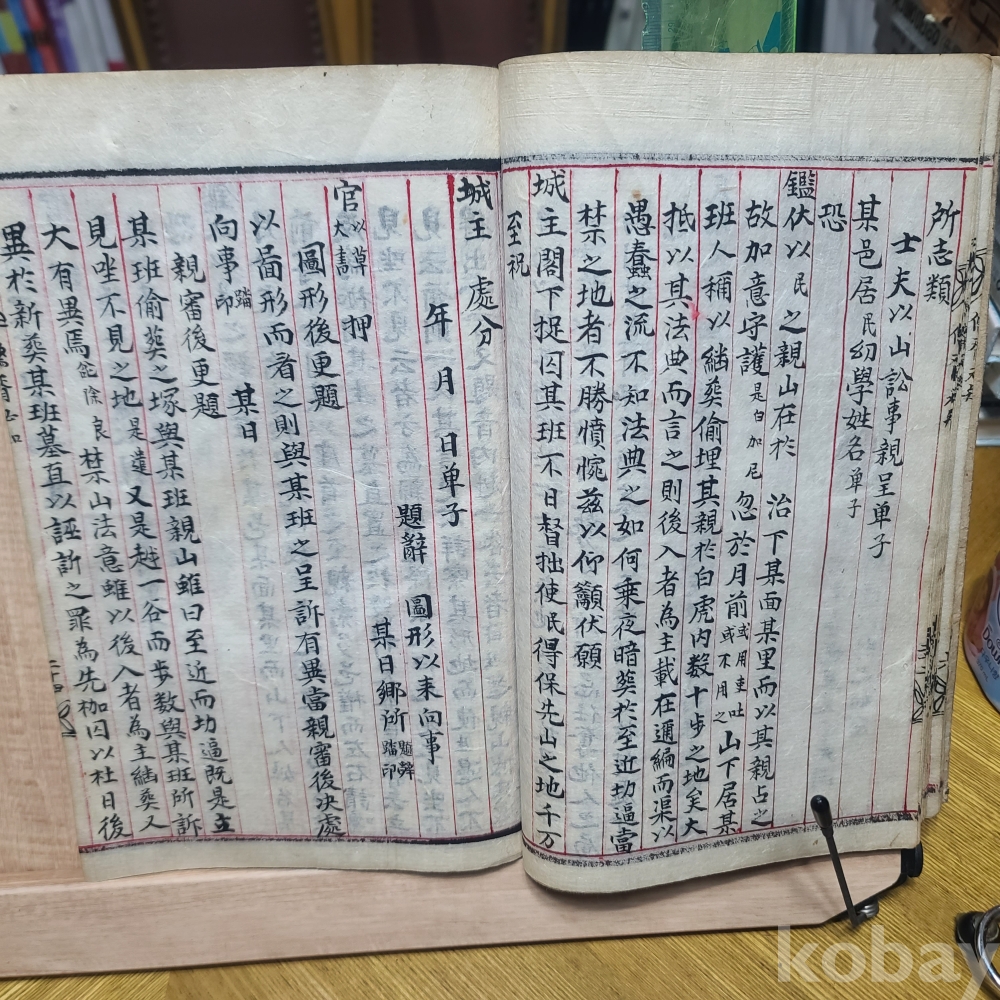 所志類
士夫以山訟事親呈单子
某邑居民幼學姓名单子
恐
鑑伏以民之親山在於 治下某面某里而以其親占之
故加意守護是白加尼 忽於月前或用吏吐或不用之山下居某
班人称以継葬偷埋其親於白虎内数十步之地矣大
抵以其法典而言之則後入者為主載在邇編而渠以
愚蠢之流不知法典之如何乗夜暗葬於至近切逼當
禁之地者不勝憤惋兹以仰籲伏願
城主閤下捉囚其班不日督拙使民得保先山之地千万
至祝
城主 處分
年 月 日单子
題辭 圖形以来向事
某日鄉所題辭踏印
官以草大書 押
圖形後更題
以啚形而者之則與某班之呈訴有異當親審後决處
向事踏印 某日
親審後更題
某班偷葬之塚與某班親山雖曰至近而切逼既是主
見坐不見之地是遠又是越一谷而步数與某班所訴
大有異焉 除良禁山法意雖以後入者為主継葬又
異於新葬某班墓直以誣訴之罪為先枷囚以杜日後
kobay